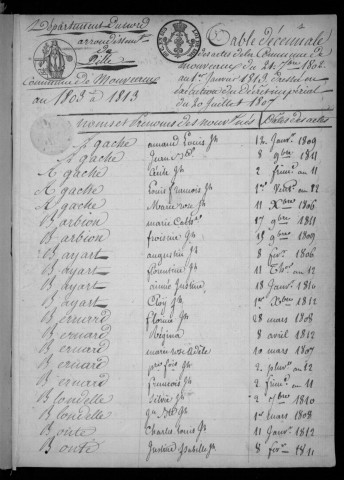 Département du nord
arrondissement
de
Lille
Commune de Mouveaux
an 1803 à 1813
Table Décennale
des actes de la Commune de
mouveaux du 21 7bre 1802
au 1er Janvier 1813 dressée en
exécution du décret impérial
du 20 Juillet 1807
noms et Prénoms des nouv. nés Dates des actes
Agache amand Louis Jh 12 Janvr 1809
Agache Jean Bte 8 9bre 1811
Agache Cécile Jh 2 frimre an 11
Agache Louis francois Jh 1er Vdre an 12
Agache Marie rose Jh 11 Xbre 1806
Barbion marie Cathne 17 9bre 1811
Barbion froisine Jh 15 9bre 1809
Bayart augustin Jh 8 fevr 1806
Bayart florentine Jh 11 Thr an 12
Bayart aimée Justine 18 Janvr 1810
Bayart Eloy Jh 1er Xbre 1812
Bernard florine Jh 28 mars 1808
Bernard Régina 8 avril 1812
Bernard marie rose Adèle 10 mars 1807
Bernard Jh 2 pluvse an 12
Bernard francois Jh 2 frimre an 11
Blondelle Silvie Jh 2 7bre 1810
Blondelle Jn Bte Jh 1er mars 1808
Bonte Charles Louis Jh 11 Janvr 1812
Bonte Justine Isabelle Jh 8 fevr 1811